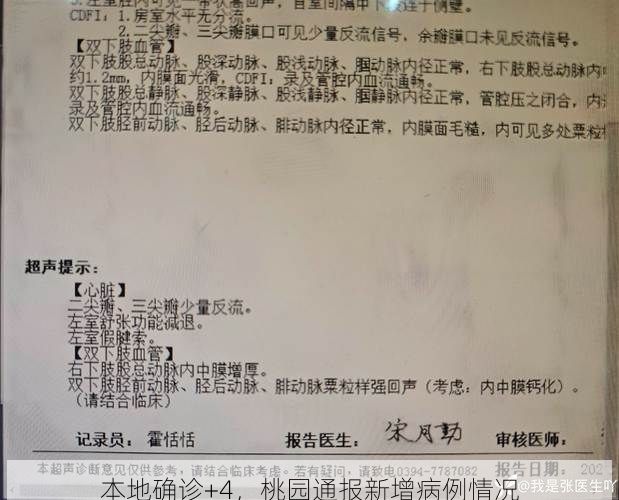 3.左室腔内可见一带状基回声，自室间隔中下段连于侧壁。
CDFI：1.房室水平无分流。
2.二尖瓣、三尖瓣膜口可见少量反流信号，余瓣膜口未见反流信号。
【双下肢血管】
双下肢股总动脉、股深动脉、股浅动脉、腘动脉内径正常，右下肢股总动脉内
约1.2mm，内膜面光滑，CDFI：录及管腔内血流通畅。
双下肢股总静脉、股深静脉、股浅静脉、腘静脉内径正常，管腔压之闭合，内
录及管腔内血流通畅。
双下肢胫前动脉、胫后动脉、腓动脉内径正常，内膜面毛糙，内可见多处粟粒样
超声提示：
【心脏】
二尖瓣、三尖瓣少量反流。
左室舒张功能减退。
左室假腱索。
【双下肢血管】
右下肢股总动脉内中膜增厚。
双下肢胫前动脉、胫后动脉、腓动脉粟粒样强回声（考虑：内中膜钙化）。
（请结合临床）
记录员：霍恬恬 报告医生：宋月勤 审核医师：
本超声诊断意见仅供参考，请结合临床考虑。若有疑问，请致电0394-7787082 报告日期：202
本地确诊+4，桃园通报新增病例情况
@我是张医生吖